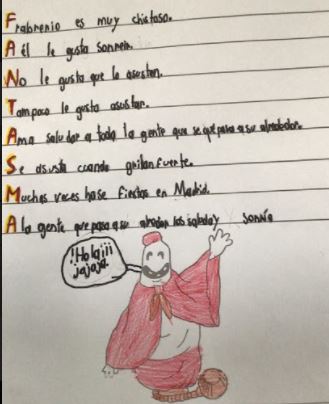 Frabrenio es muy chistoso.
A él le gusta sonreir.
No le gusta que lo asusten.
Tampoco le gusta asustar.
Ama saludar a toda la gente que se que pasa a su alrededor.
Se asusta cuando gritan fuerte.
Muchas veces hase fiestas en Madrid.
A la gente que pasa a su alrededor los saluda y sonríe
¡¡Hola¡¡¡
jajaja.